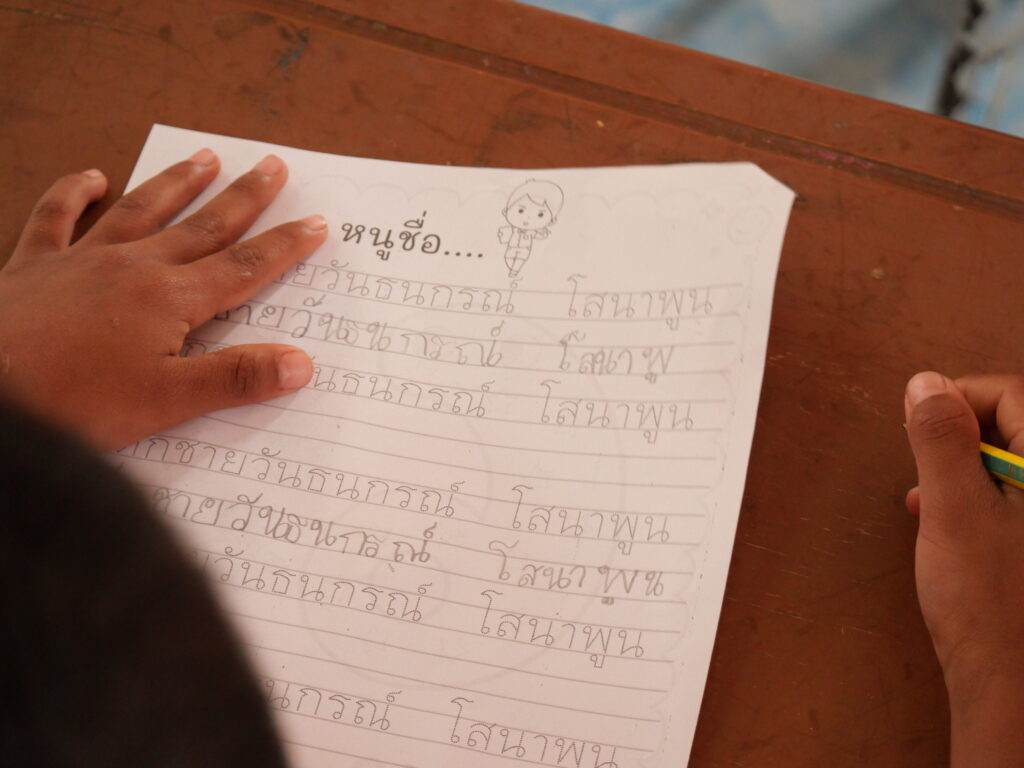 หนูชื่อ....
ยวันธนกรณ์ โสนาพูน
ชายวันธนกรณ์ โสนาพู
ันธนกรณ์ โสนาพูน
กชายวันธนกรณ์ โสนาพูน
ชายวันธนกรณ์ โสนาพูน
ยวันธนกรณ์ โสนาพูน
นกรณ์ โสนาพูน